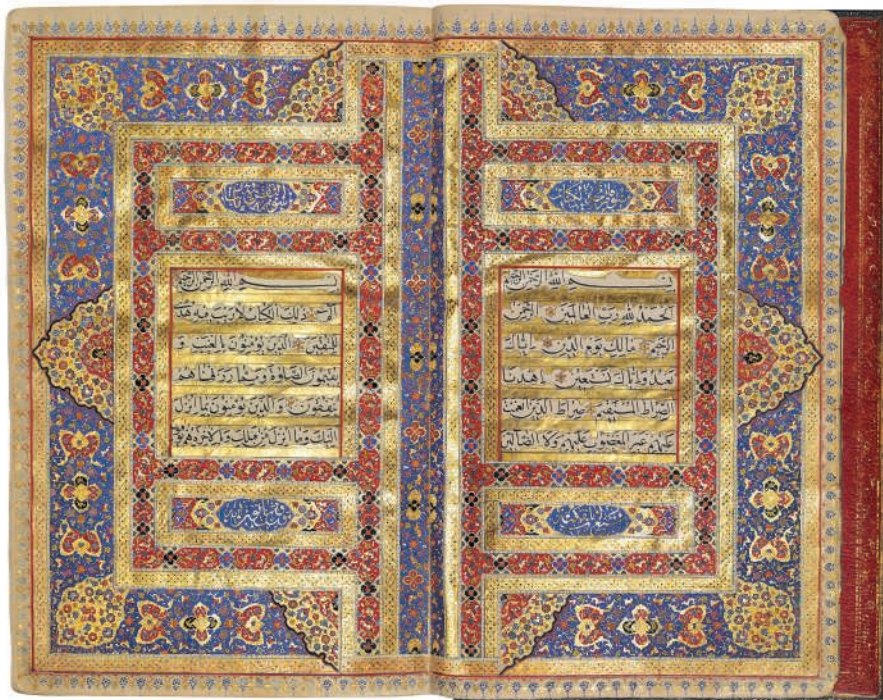 بسم الله الرحمن الرحيم
الحمد لله رب العالمين الرحمن
الرحيم مالك يوم الدين اياك
نعبد واياك نستعين اهدنا
الصراط المستقيم صراط الذين انعمت
عليهم غير المغضوب عليهم ولا الضالين
بسم الله الرحمن الرحيم
الم ذلك الكتاب لا ريب فيه هدى
للمتقين الذين يؤمنون بالغيب و
يقيمون الصلوة ومما رزقناهم
ينفقون والذين يؤمنون بما انزل
اليك وما انزل من قبلك وبالاخرة هم يو